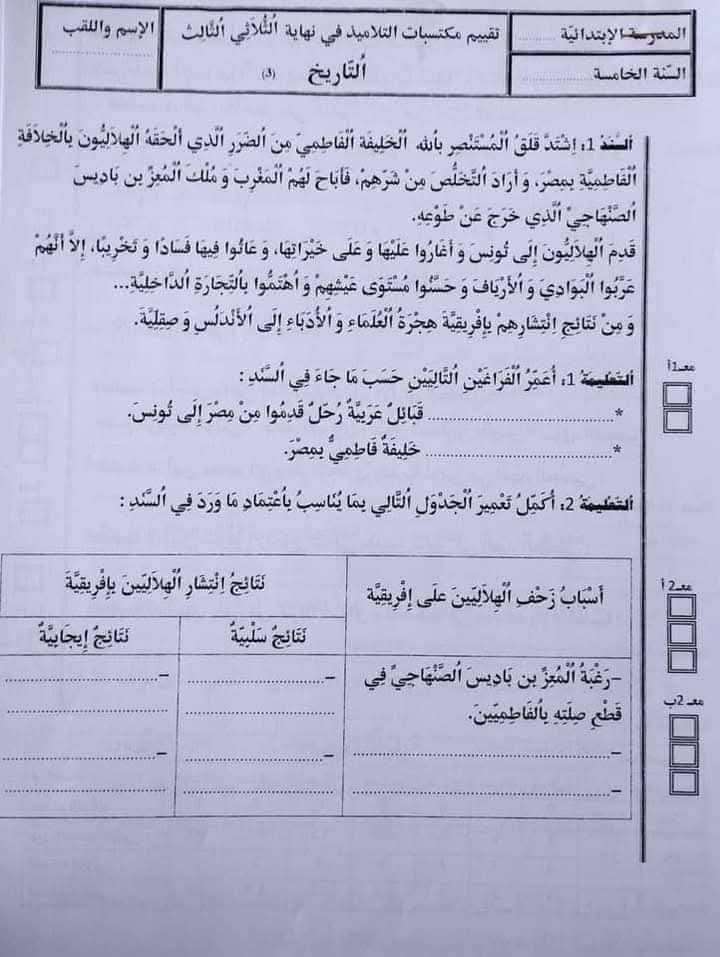 المدرسة الإبتدائيّة ............
تقييم مكتسبات التلاميذ في نهاية اُلثُّلاَثي اُلثَّالِث
الإسم واللقب
السّنة الخامسة ....................
اُلتَّاريخ (3)
....................
اَلسَّنَدُ 1: اِشْتَدَّ قَلَقُ اُلْمُسْتَنْصِرِ بِاُلله اُلْخَلِيفَةِ اُلْفَاطِمِيِّ مِنَ اُلضَّرَرِ اُلَّذِي أَلْحَقَهُ اُلْهِلاَلِيُّونَ بِاُلْخِلاَفَةِ
اُلْفَاطِمِيَّةِ بِمِصْرَ، وَ أَرَادَ اُلتَّخَلُّصَ مِنْ شَرِّهِمْ، فَأَبَاحَ لَهُمُ اُلْمَغْرِبَ وَ مُلْكَ اُلْمُعِزِّ بن بَادِيسَ
اُلصَّنْهَاجِيِّ اُلَّذِي خَرَجَ عَنْ طَوْعِهِ.
قَدِمَ اُلْهِلاَلِيُّونَ إِلَى تُونِسَ وَ أَغَارُوا عَلَيْهَا وَ عَلَى خَيْرَاتِهَا، وَ عَاثُوا فِيهَا فَسَادًا وَ تَخْرِيبًا، إِلاَّ أَنَّهُمْ
عَرَّبُوا اُلْبَوَادِيَ وَ اُلْأَرْيَافَ وَ حَسَّنُوا مُسْتَوَى عَيْشِهِمْ وَ اُهْتَمُّوا بِاُلتِّجَارَةِ اُلدَّاخِلِيَّةِ...
وَ مِنْ نَتَائِجِ اِنْتِشَارِهِمْ بِإِفْرِيقِيَّةَ هِجْرَةُ اُلْعُلَمَاءِ وَ اُلْأُدَبَاءِ إِلَى اُلْأَنْدَلُسِ وَ صِقِلِيَّةَ.
معـ1أ
اَلتَّعْلِيمَةُ 1: أُعَمِّرُ اُلْفَرَاغَيْنِ اُلتَّالِيَيْنِ حَسَبَ مَا جَاءَ فِي اُلسَّنَدِ :
* .......................................... قَبَائِلُ عَرَبِيَّةٌ رُحَّلٌ قَدِمُوا مِنْ مِصْرَ إِلَى تُونِسَ.
* .......................................... خَلِيفَةٌ فَاطِمِيٌّ بِمِصْرَ.
اَلتَّعْلِيمَةُ 2: أُكَمِّلُ تَعْمِيرَ اُلْجَدْوَلِ اُلتَّالِي بِمَا يُنَاسِبُ بِاُعْتِمَادِ مَا وَرَدَ فِي اُلسَّنَدِ :
معـ2 أ
أَسْبَابُ زَحْفِ اُلْهِلاَلِيِّينَ عَلَى إِفْرِيقِيَّة
نَتَائِجُ اِنْتِشَارِ اُلْهِلاَلِيِّينَ بِإِفْرِيقِيَّةَ
نَتَائِجُ سَلْبِيَّةٌ
نَتَائِجُ إِيجَابِيَّةٌ
–رَغْبَةُ اُلْمُعِزِّ بن بَادِيسَ اُلصَّنْهَاجِيِّ فِي
قَطْعِ صِلَتِهِ بِالفَاطِمِيِّينَ.
–..........................................
–..........................................
–..............................
..............................
–..............................
..............................
–..............................
..............................
–..............................
..............................
معـ 2ب